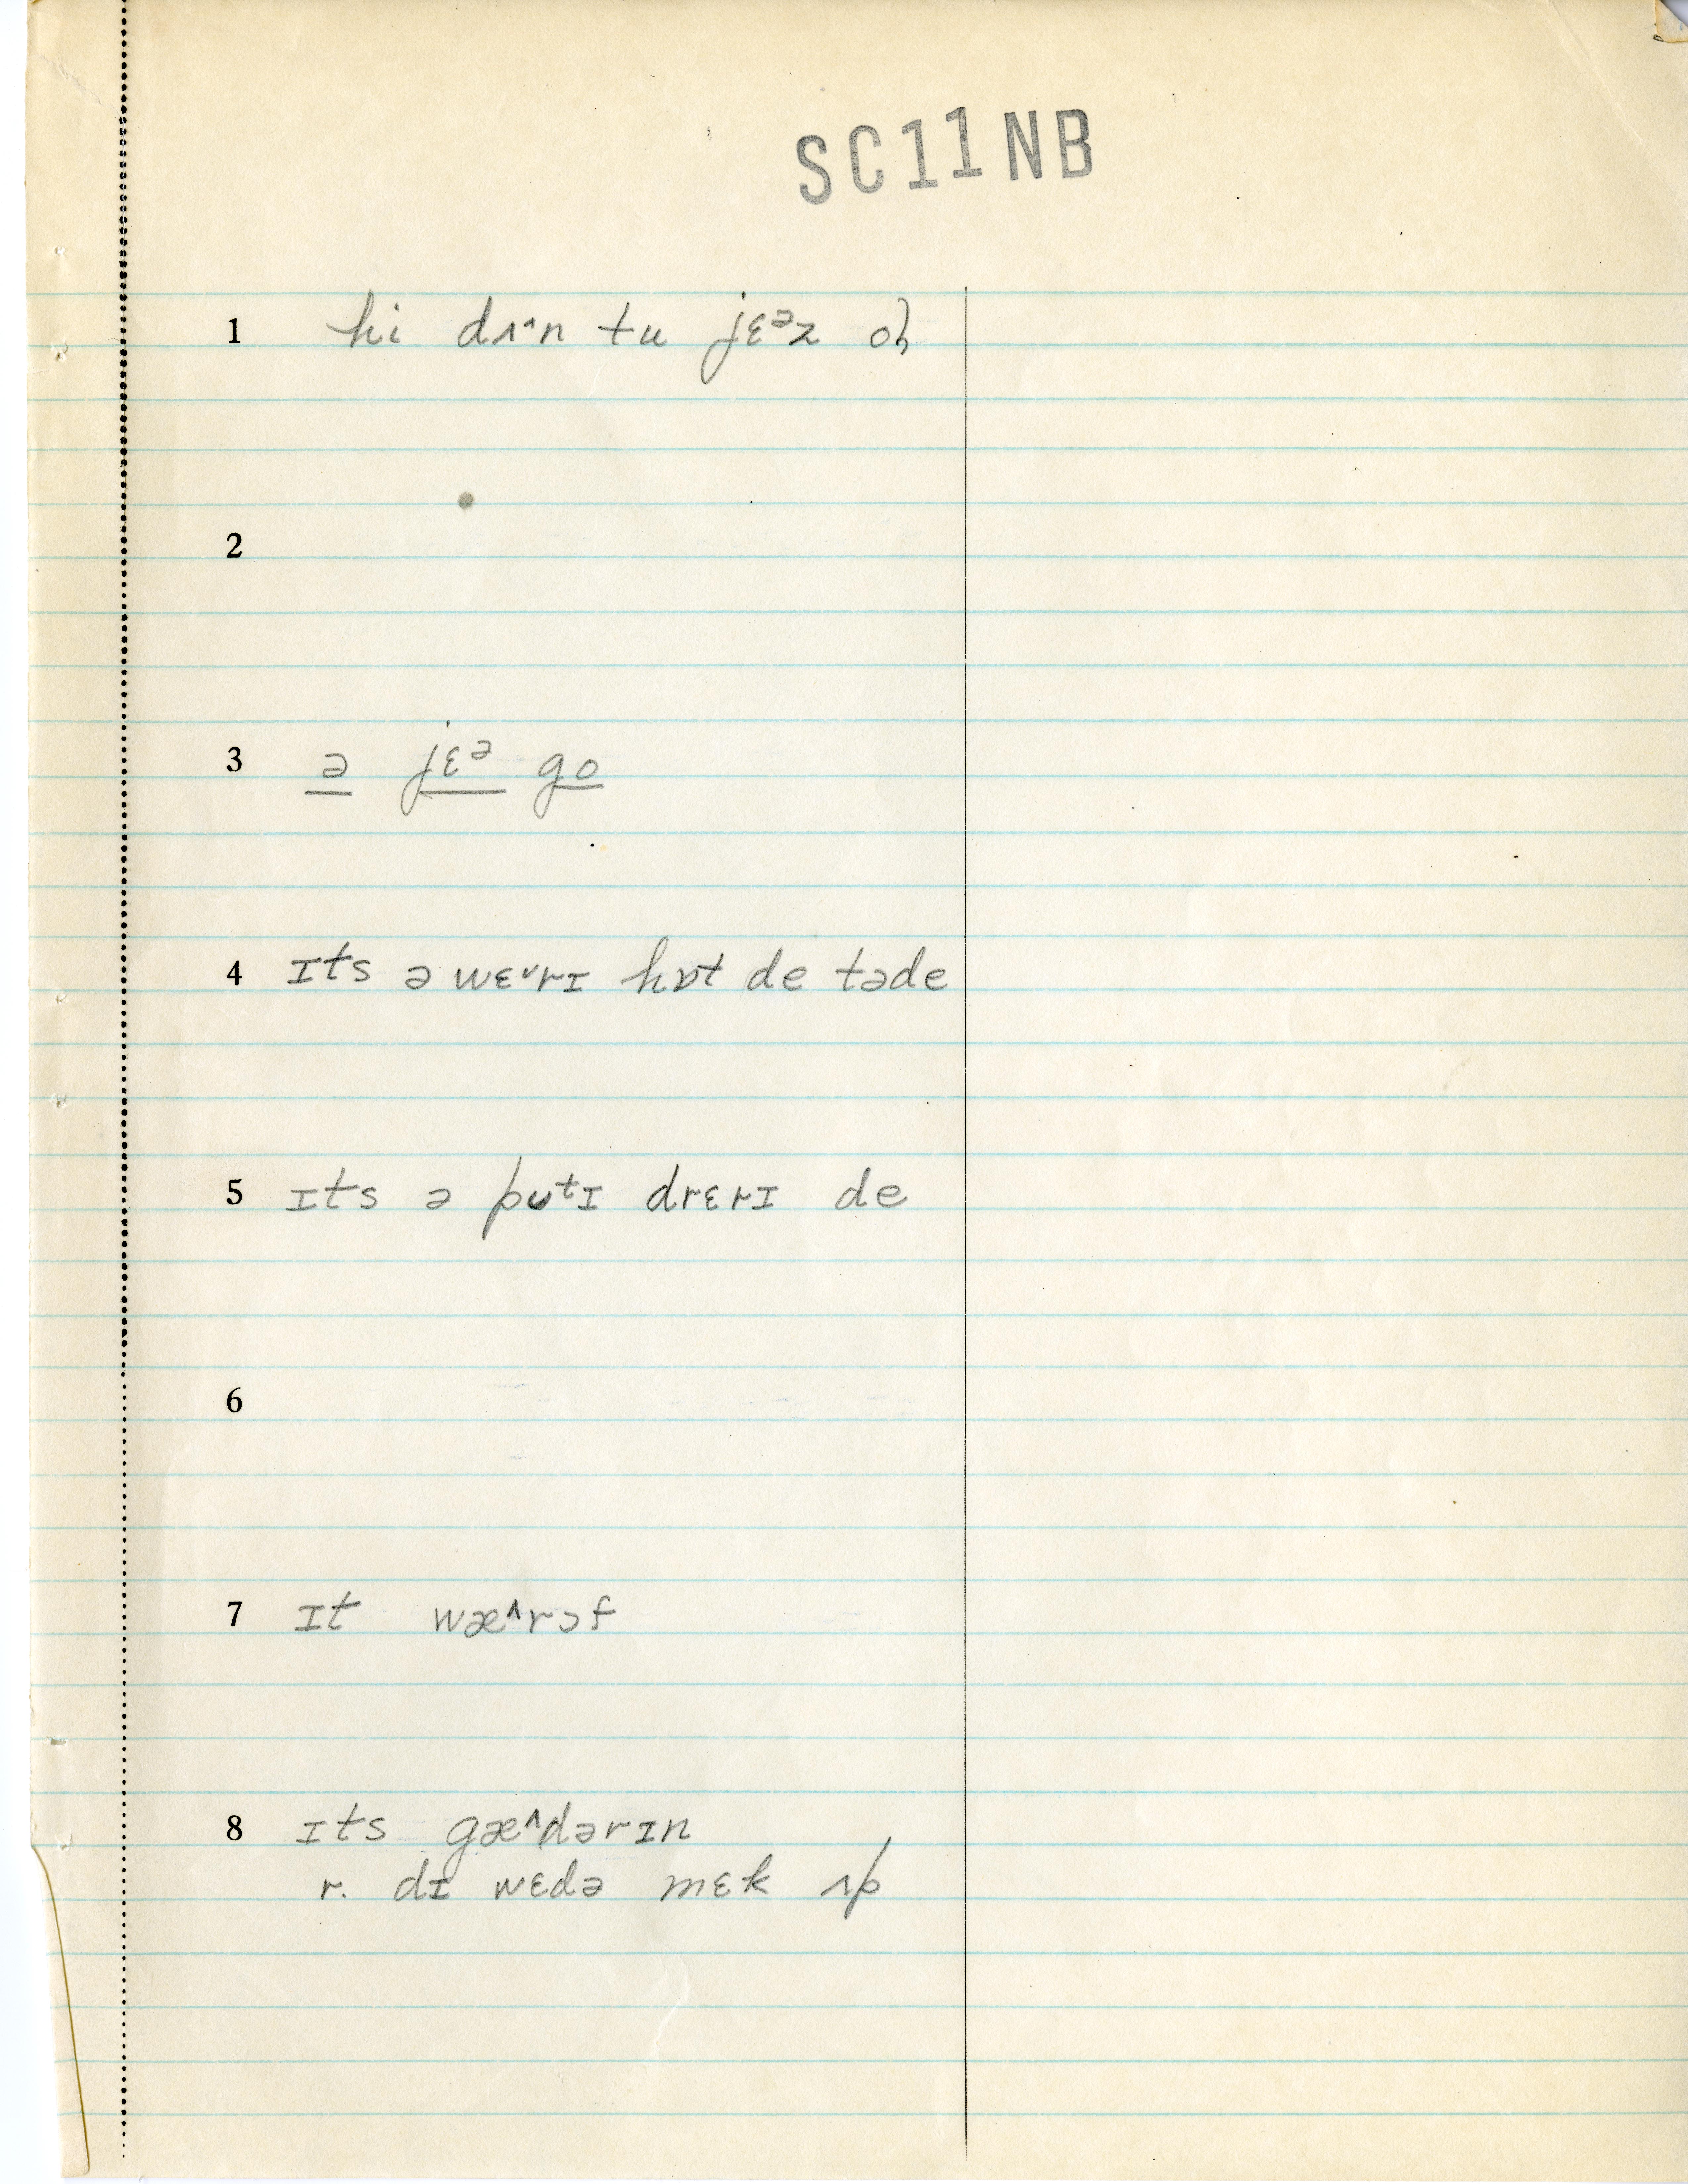 SC11NB
1 hi dʌ˄n tu jɛᵊz
2
3 ə jɛᵊ go
4 ɪts ə wɛ˅rɪ hɒt de təde
5 ɪts ə pʊtɪ drɛrɪ de
6
7 ɪt wæ˄rɔf
8 ɪts gæ˄dərɪn
r. dɪ wɛdə mɛk ʌp